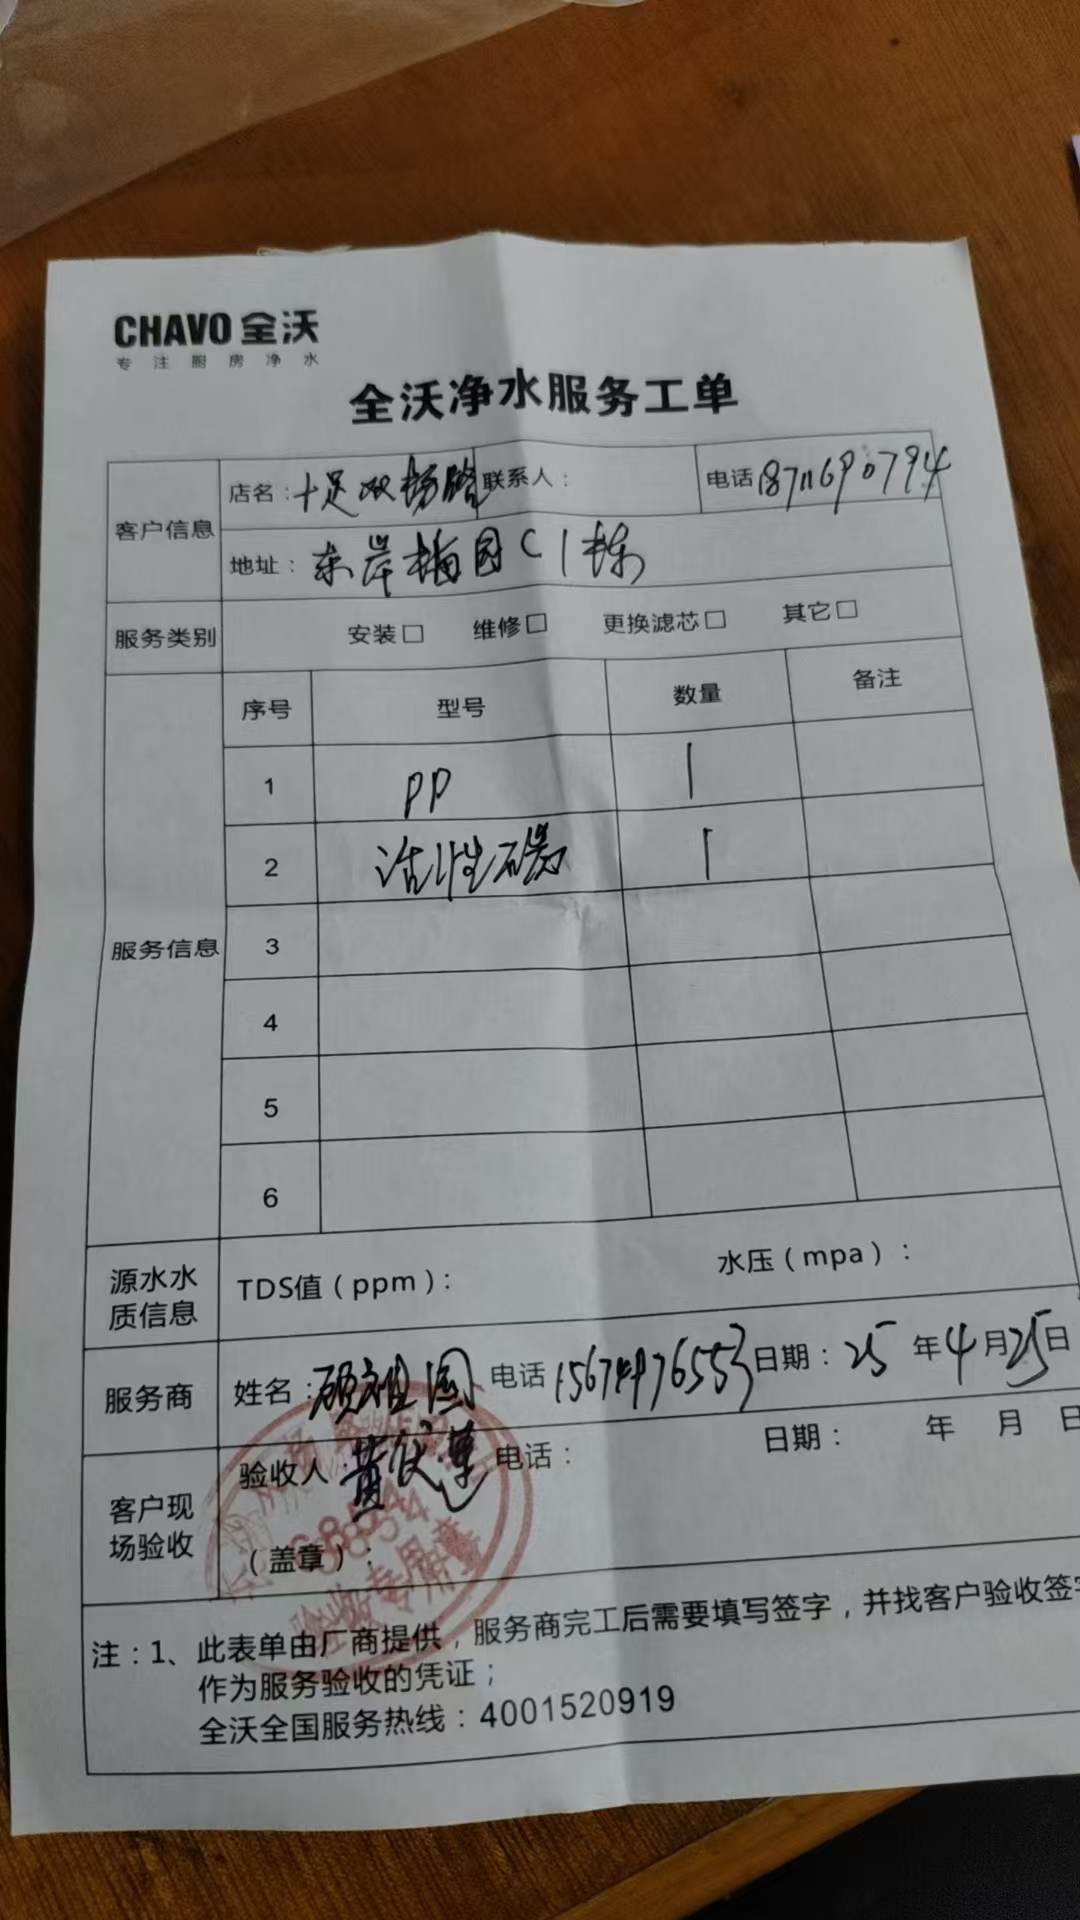 CHAVO 全沃
专注厨房净水
全沃净水服务工单
客户信息
店名：十足双杨路 联系人： 电话 18711690794
地址：东岸梅园C1栋
服务类别 安装□ 维修□ 更换滤芯□ 其它□
服务信息
序号 型号 数量 备注
1 PP 1
2 活性碳 1
3
4
5
6
源水水质信息 TDS值（ppm）： 水压（mpa）：
服务商 姓名：顾祖国 电话 15674976553 日期：25 年 4 月 25 日
客户现场验收 验收人： 电话： 日期： 年 月 日
（盖章）：
验收专用章
注：1、此表单由厂商提供，服务商完工后需要填写签字，并找客户验收签字
作为服务验收的凭证；
全沃全国服务热线：4001520919